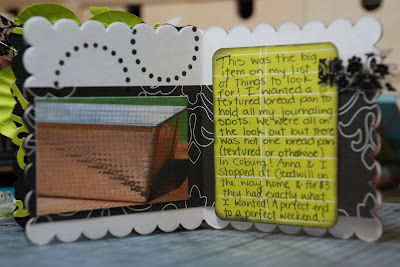 This was the big
item on my list
of things to look
for! I wanted a
textured bread pan to
hold all my journaling
spots. We were all on
the look out but there
was not one bread pan
(textured or otherwise)
in Coburg! Anna & I
stopped at Goodwill on
the way home & for $3
they had exactly what
I wanted! A perfect end
to a perfect weekend!